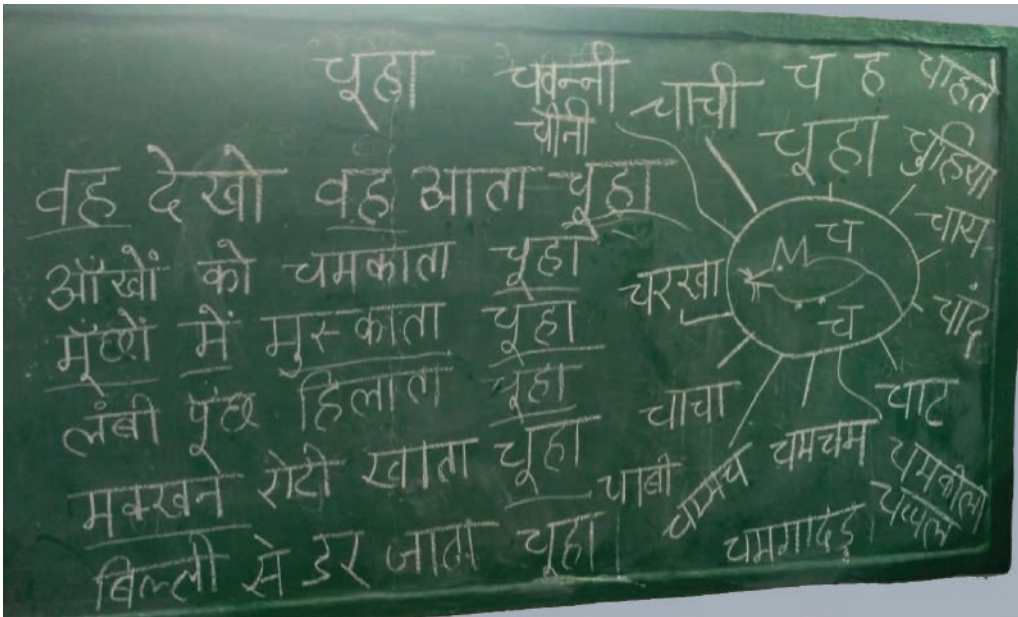 चूहा
वह देखो वह आता चूहा
आँखों को चमकाता चूहा
मूँछों में मुस्काता चूहा
लंबी पूँछ हिलाता चूहा
मक्खन रोटी खाता चूहा
बिल्ली से डर जाता चूहा
चवन्नी
चीनी
चाची
च ह
चाहते
चूहा
चुहिया
चाय
चांद
च
च
चरखा
चाचा
चाबी
चम्मच
चमचम
चाट
चमकीला
चप्पल
चमगादड़